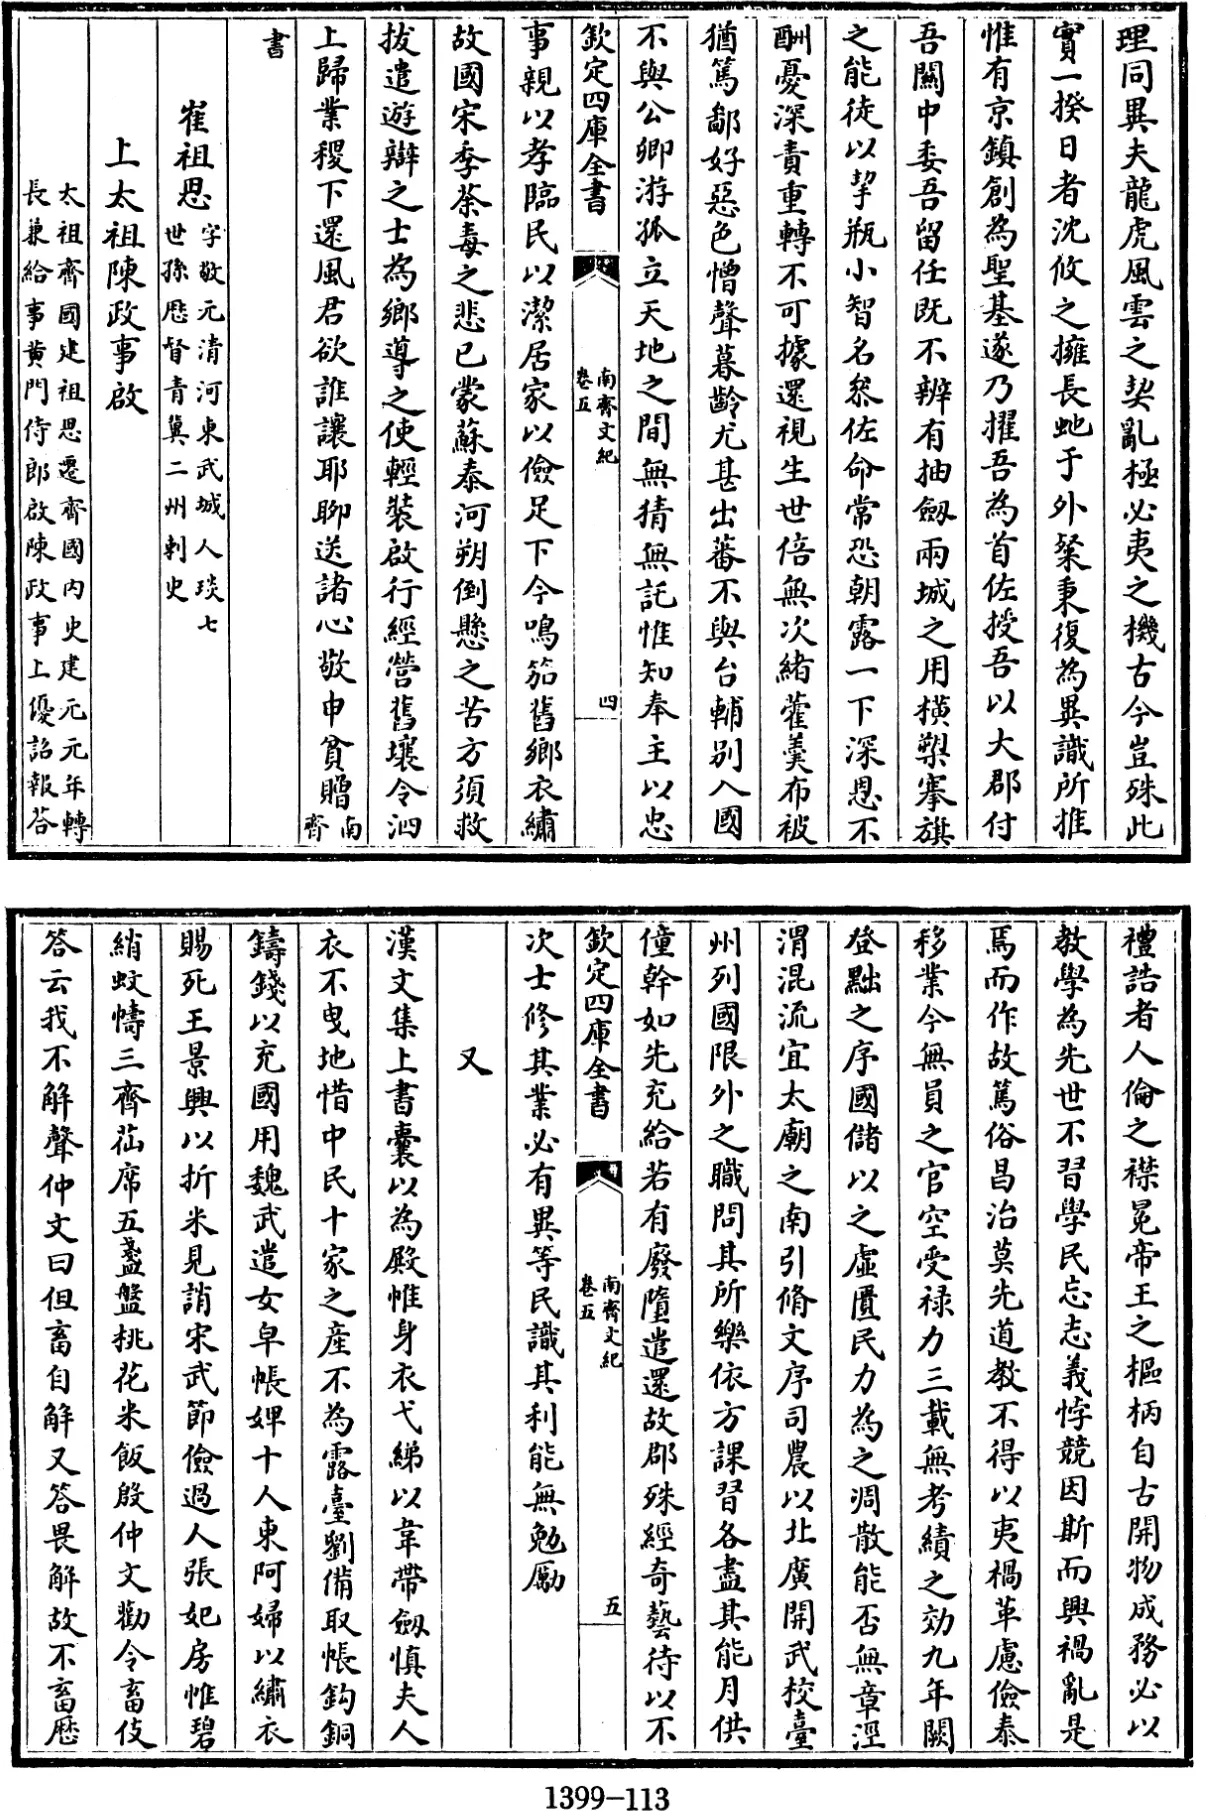 理同異夫龍虎風雲之契亂極必夷之機古今豈殊此
實一揆日者沈攸之擁長虵于外粲秉復為異識所推
惟有京鎮創為聖基遂乃擢吾為首佐授吾以大郡付
吾關中委吾留任既不辨有抽劔兩城之用横槊搴旗
之能徒以挈瓶小智名叅佐命常恐朝露一下深恩不
酬憂深責重轉不可據還視生世倍無次緒藿羮布被
猶篤鄙好惡色憎聲暮齡尤甚出蕃不與台輔别入國
不與公卿游孤立天地之間無猜無託惟知奉主以忠
欽定四庫全書
南齊文紀
卷五
四
事親以孝臨民以潔居家以儉足下今鳴笳舊鄉衣繡
故國宋季荼毒之悲已蒙蘇泰河朔倒懸之苦方須救
拔遣遊辯之士為鄉導之使輕裝啟行經營舊壤令泗
上歸業稷下還風君欲誰讓耶聊送諸心敬申貧贈南
齊
書
崔祖思字敬元清河東武城人琰七
世孫歴督青冀二州刺史
上太祖陳政事啟
太祖齊國建祖思遷齊國内史建元元年轉
長兼給事黄門侍郎啟陳政事上優詔報荅
禮誥者人倫之襟冕帝王之樞柄自古開物成務必以
教學為先世不習學民忘志義悖競因斯而興禍亂是
焉而作故篤俗昌治莫先道教不得以夷禍革慮儉泰
移業今無員之官空受禄力三載無考績之効九年闕
登黜之序國儲以之虚匱民力為之凋散能否無章涇
渭混流宜太廟之南引脩文序司農以北廣開武校臺
州列國限外之職問其所樂依方課習各盡其能月供
僮幹如先充給若有廢隳遣還故郡殊經奇藝待以不
欽定四庫全書
南齊文紀
卷五
五
次士修其業必有異等民識其利能無勉厲
又
漢文集上書囊以為殿帷身衣弋綈以韋帶劔慎夫人
衣不曳地惜中民十家之產不為露臺劉備取帳鈎銅
鑄錢以充國用魏武遣女皁帳婢十人東阿婦以繡衣
賜死王景興以折米見誚宋武節儉過人張妃房帷碧
綃蚊幬三齊苮席五盞盤桃花米飯殷仲文勸令畜伎
答云我不解聲仲文曰但畜自解又答畏解故不畜歴
1399-113